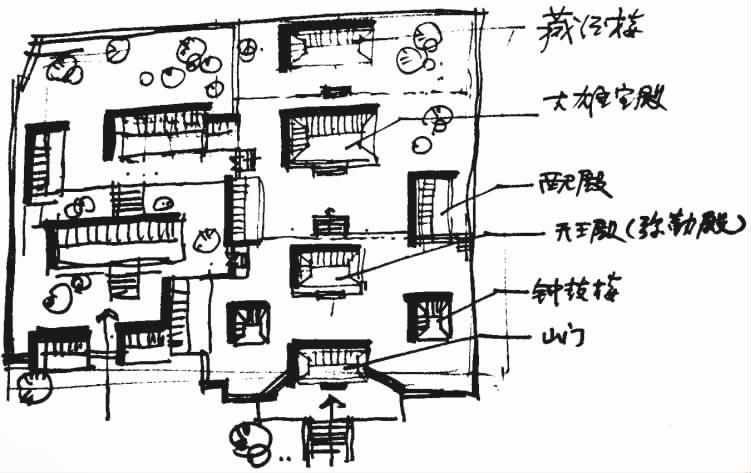 藏经楼
大雄宝殿
配殿
天王殿(弥勒殿)
钟鼓楼
山门